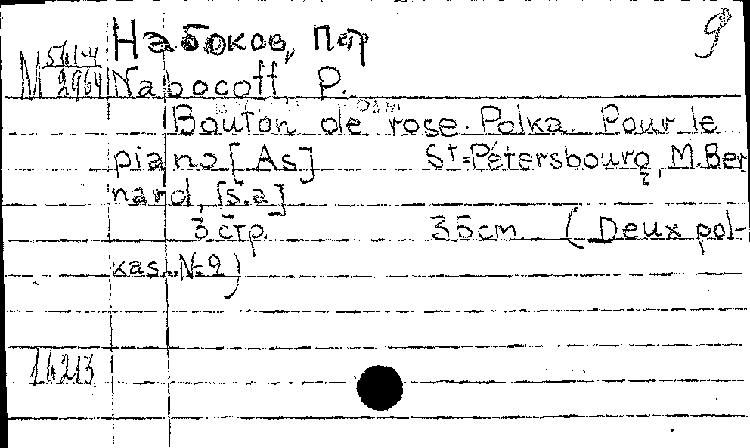 Набоков, Петр
9
M
Nabocoff, P.
Bouton de rose. Polka. Pour le
piano [As] St=Pétersbourg, M. Ber
nard, [s.a]
3 стр. 35 cm (Deux pol-
kas. №2)